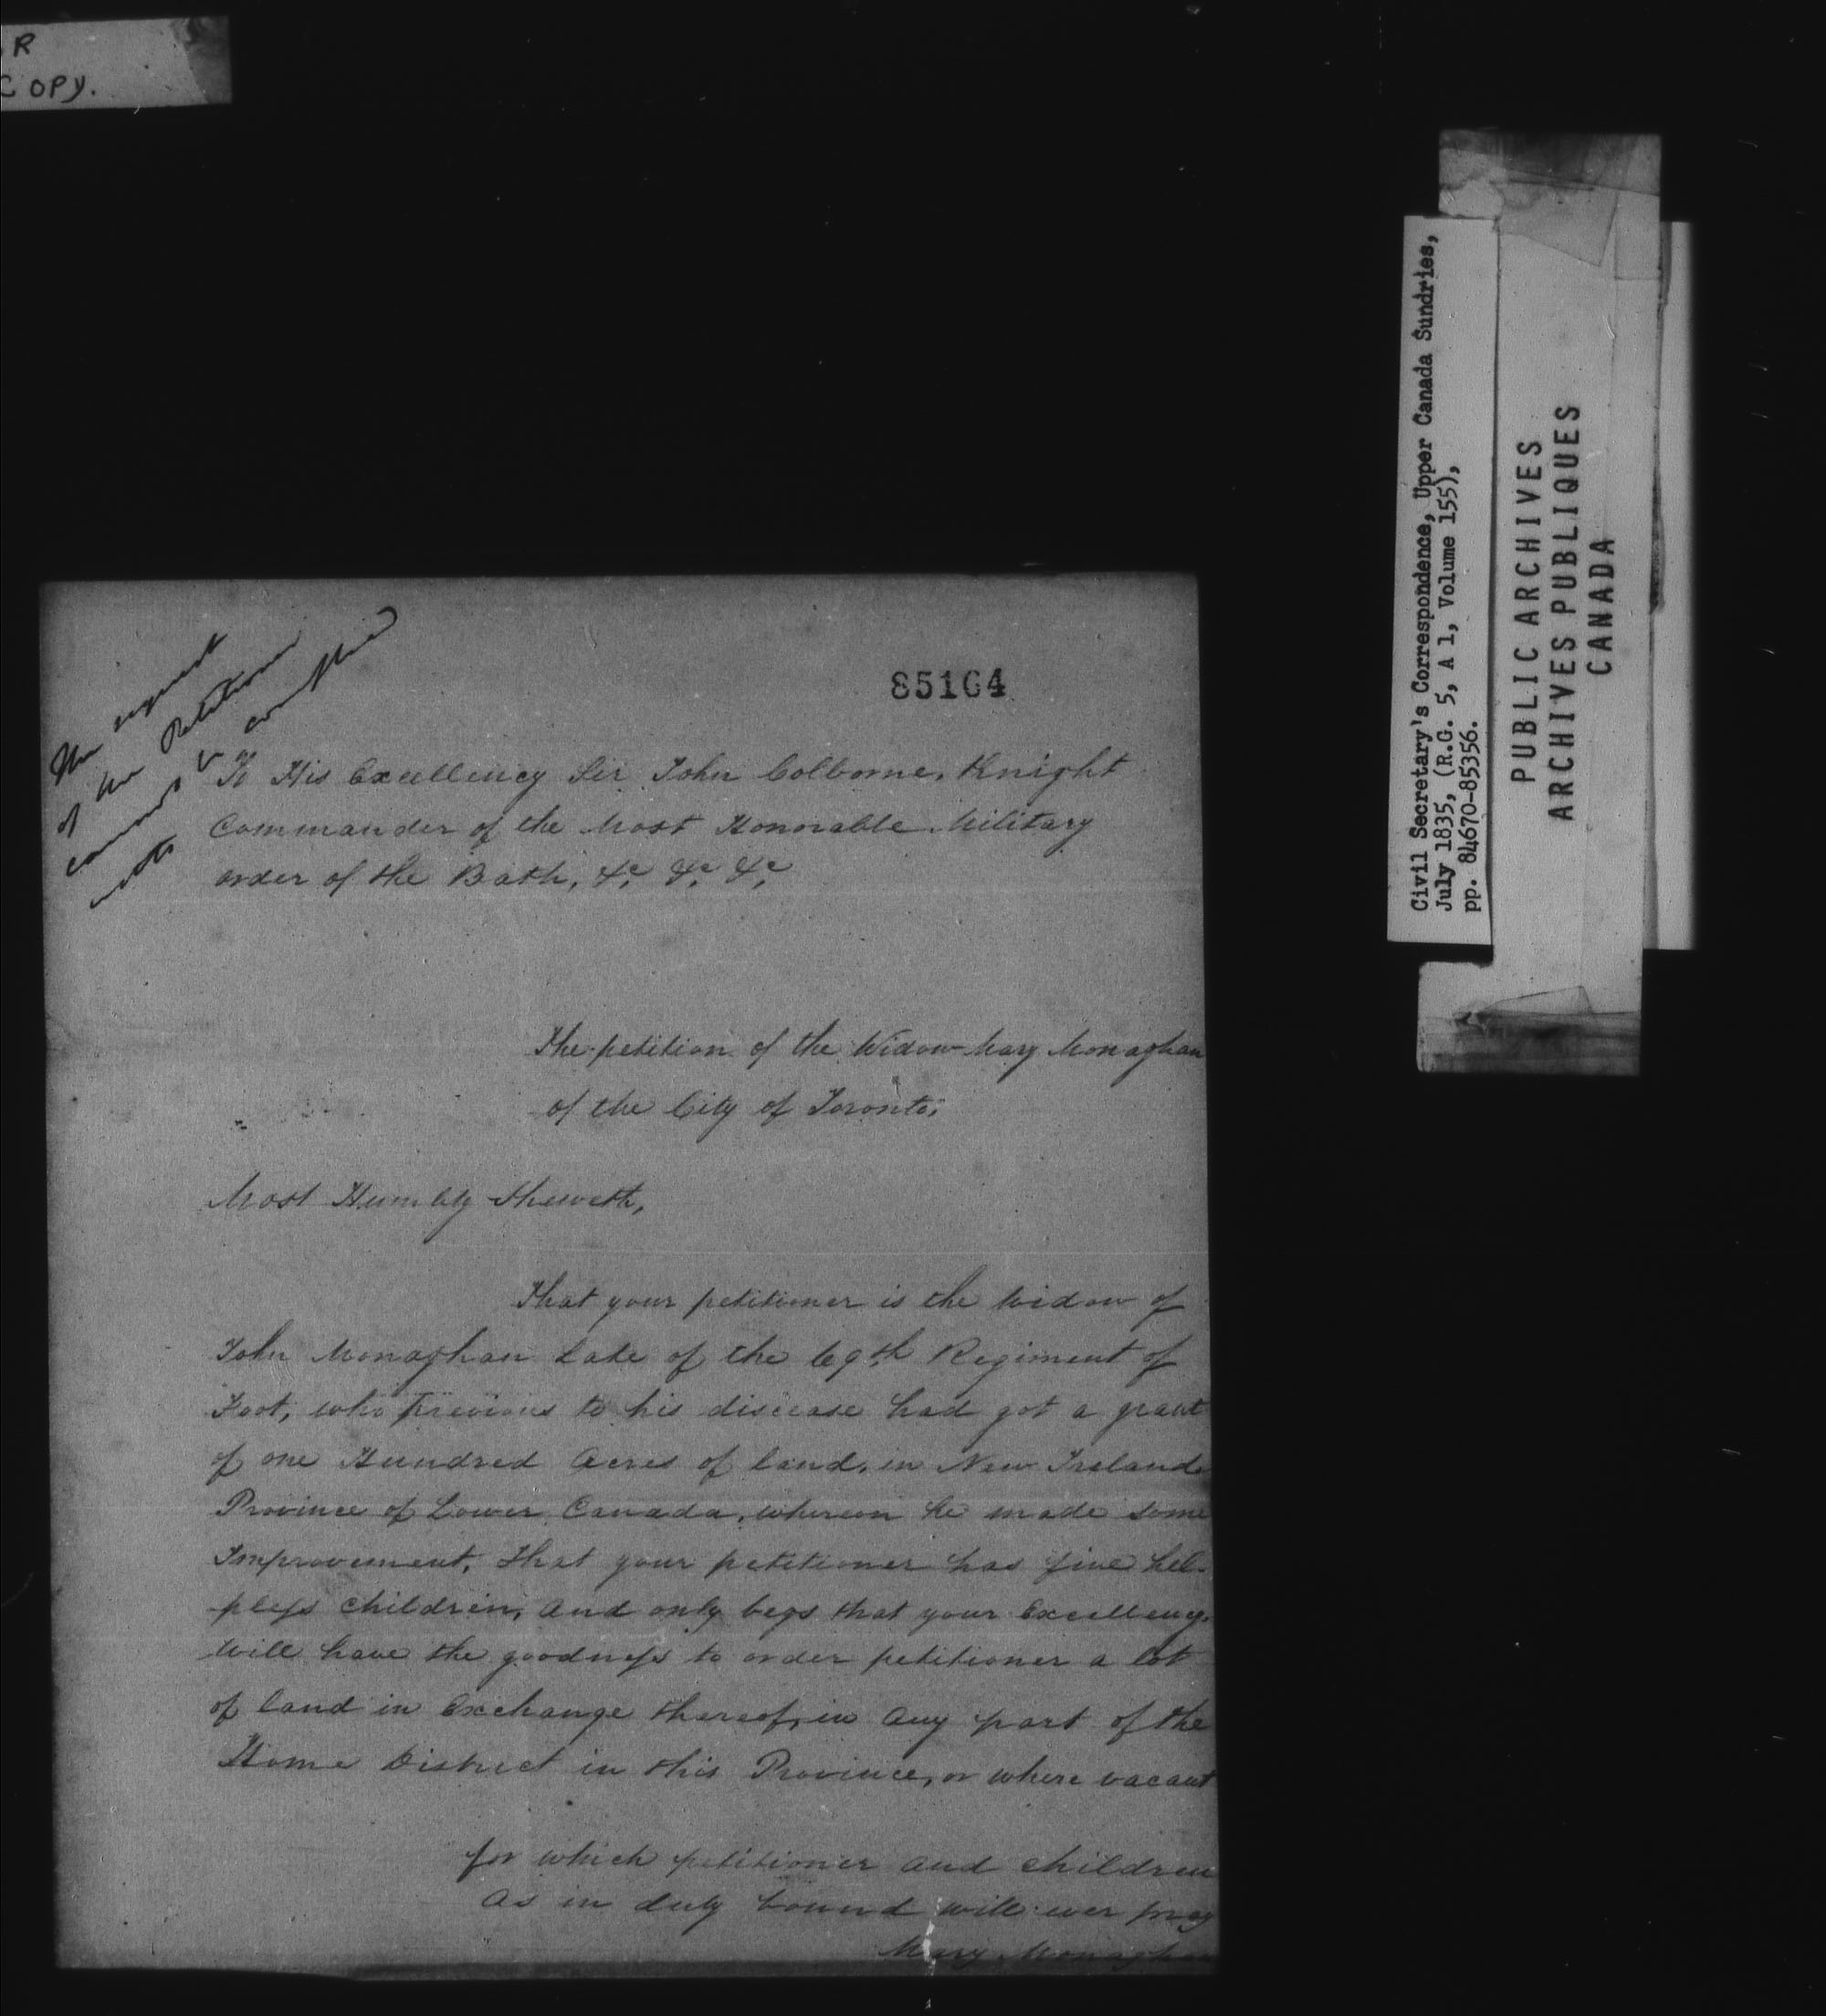 R
COPY.
Civil Secretary's Correspondence, Upper Canada Sundries,
July 1835, (R.G. 5, A 1, Volume 155),
pp. 84670-85356.
PUBLIC ARCHIVES
ARCHIVES PUBLIQUES
CANADA
85164
The request
of the Petitioner
cannot be complied
with
To His Excellency Sir John Colborne, Knight
Commander of the Most Honorable Military
order of the Bath, &c &c &c
The petition of the Widow Mary Monaghan
of the City of Toronto,
Most Humbly Sheweth,
That your petitioner is the Widow of
John Monaghan Late of the 69th Regiment of
Foot, who previous to his disease had got a grant
of one Hundred Acres of land, in New Ireland
Province of Lower Canada, whereon he made some
Improvement, that your petitioner has five hel-
pless children, and only begs that your Excellency
Will have the goodness to order petitioner a lot
of land in Exchange thereof, in any part of the
Home District in this Province, or where vacant
for which petitioner and children
as in duty bound will ever pray
Mary Monaghan